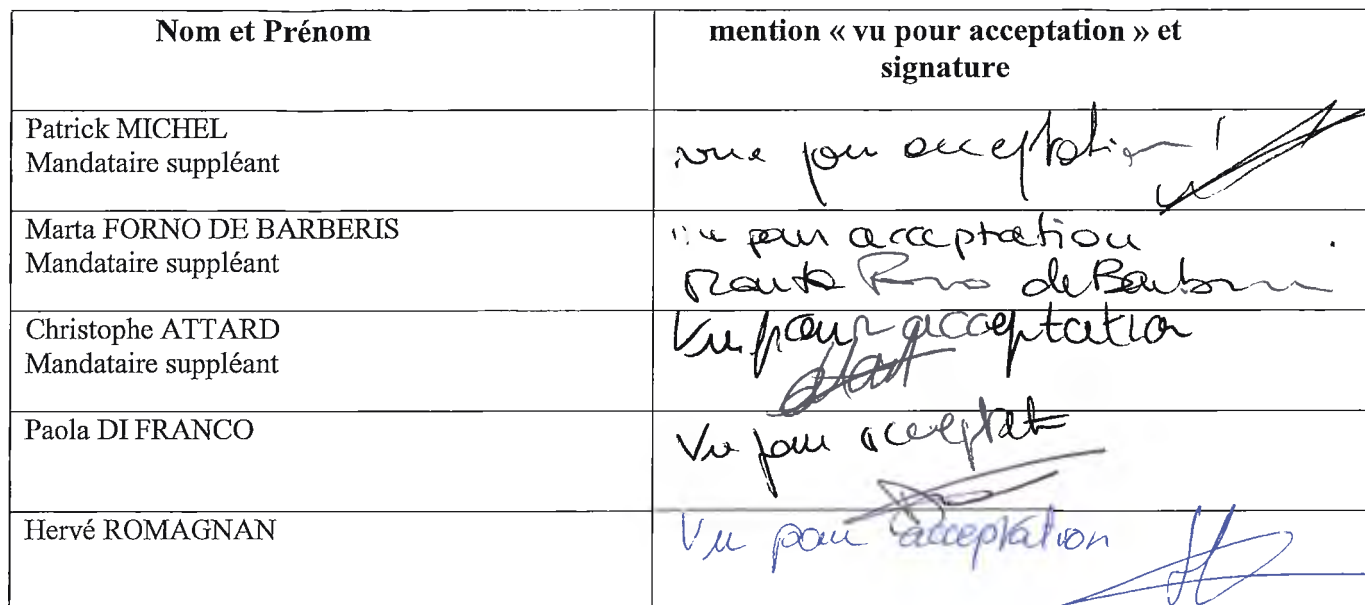 Nom et Prénom
mention « vu pour acceptation » et
signature
Patrick MICHEL
Mandataire suppléant
vue pour acceptation !
Marta FORNO DE BARBERIS
Mandataire suppléant
pour accaptation
de
Christophe ATTARD
Mandataire suppléant
Vu pour acceptation
Paola DI FRANCO
Vu pour acceptat
Hervé ROMAGNAN
Vu pour acceptation